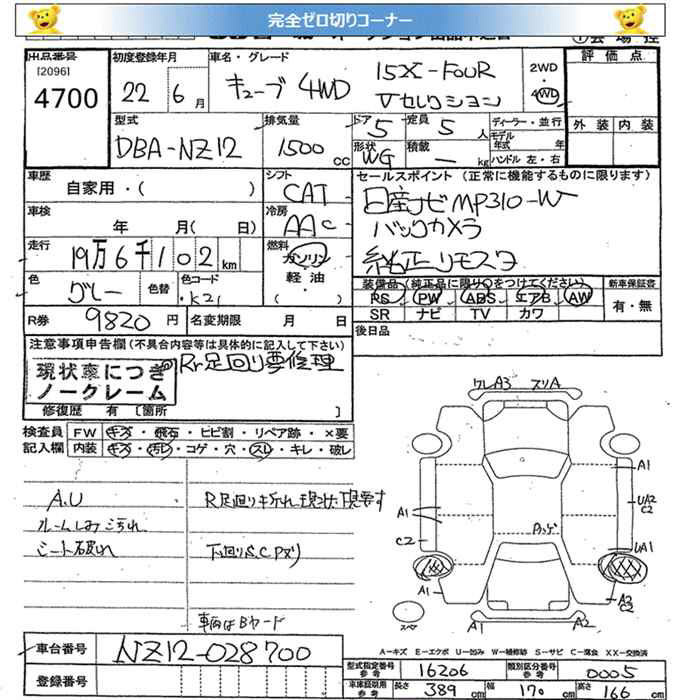 完全ゼロ切りコーナー
出品番号
[2096]
4700
初度登録年月
22年 6月
車名・グレード
キューブ 4WD
15X-FOUR
Vセレクション
2WD
・
4WD
評価点
外装 内装
型式
DBA-NZ12
排気量
1500 cc
ドア 5
定員 5 人
形状 WG
積載 ー kg
ディーラー・並行
モデル年式 年
ハンドル 左・右
車歴
自家用・( )
シフト
CAT
セールスポイント (正常に機能するものに限ります)
日産ナビMP310-W
バックカメラ
純正リモスタ
車検
年 月( 日)
冷房
AAC
走行
19万6千102km
燃料
ガソリン
軽・油
( )
色
グレー
色替
色コード
・K21
装備品(純正品に限り○をつけてください)
PS PW ABS エアB AW
SR ナビ TV カワ
新車保証書
有・無
R券 9820円
名変期限 月 日
後日品
注意事項申告欄(不具合内容等は具体的に記入して下さい)
現状車につき
ノークレーム
Rr足回り要修理
修復歴 有 [箇所 ]
検査員
記入欄
FW キズ・飛石・ヒビ割・リペア跡・×要
内装 キズ・汚レ・コゲ・穴・スレ・キレ・破レ
A.U
ルームしみ汚れ
シート破れ
R足回り折れ現状下現要す
下回りS.C Pヌリ
車両はBヤード
ワレA3 スリA
A1
UA2
C2
A1
C2
UA1
A1
スペア
A1
A2
C2
A-キズ E-エクボ U-凹み W-補修跡 S-サビ C-腐食 XX-交換済
車台番号
NZ12-028700
登録番号
型式指定番号
参考
16206
類別区分番号
参考
0005
車検証記載
参考
長さ 389cm
幅 170cm
高さ 166cm